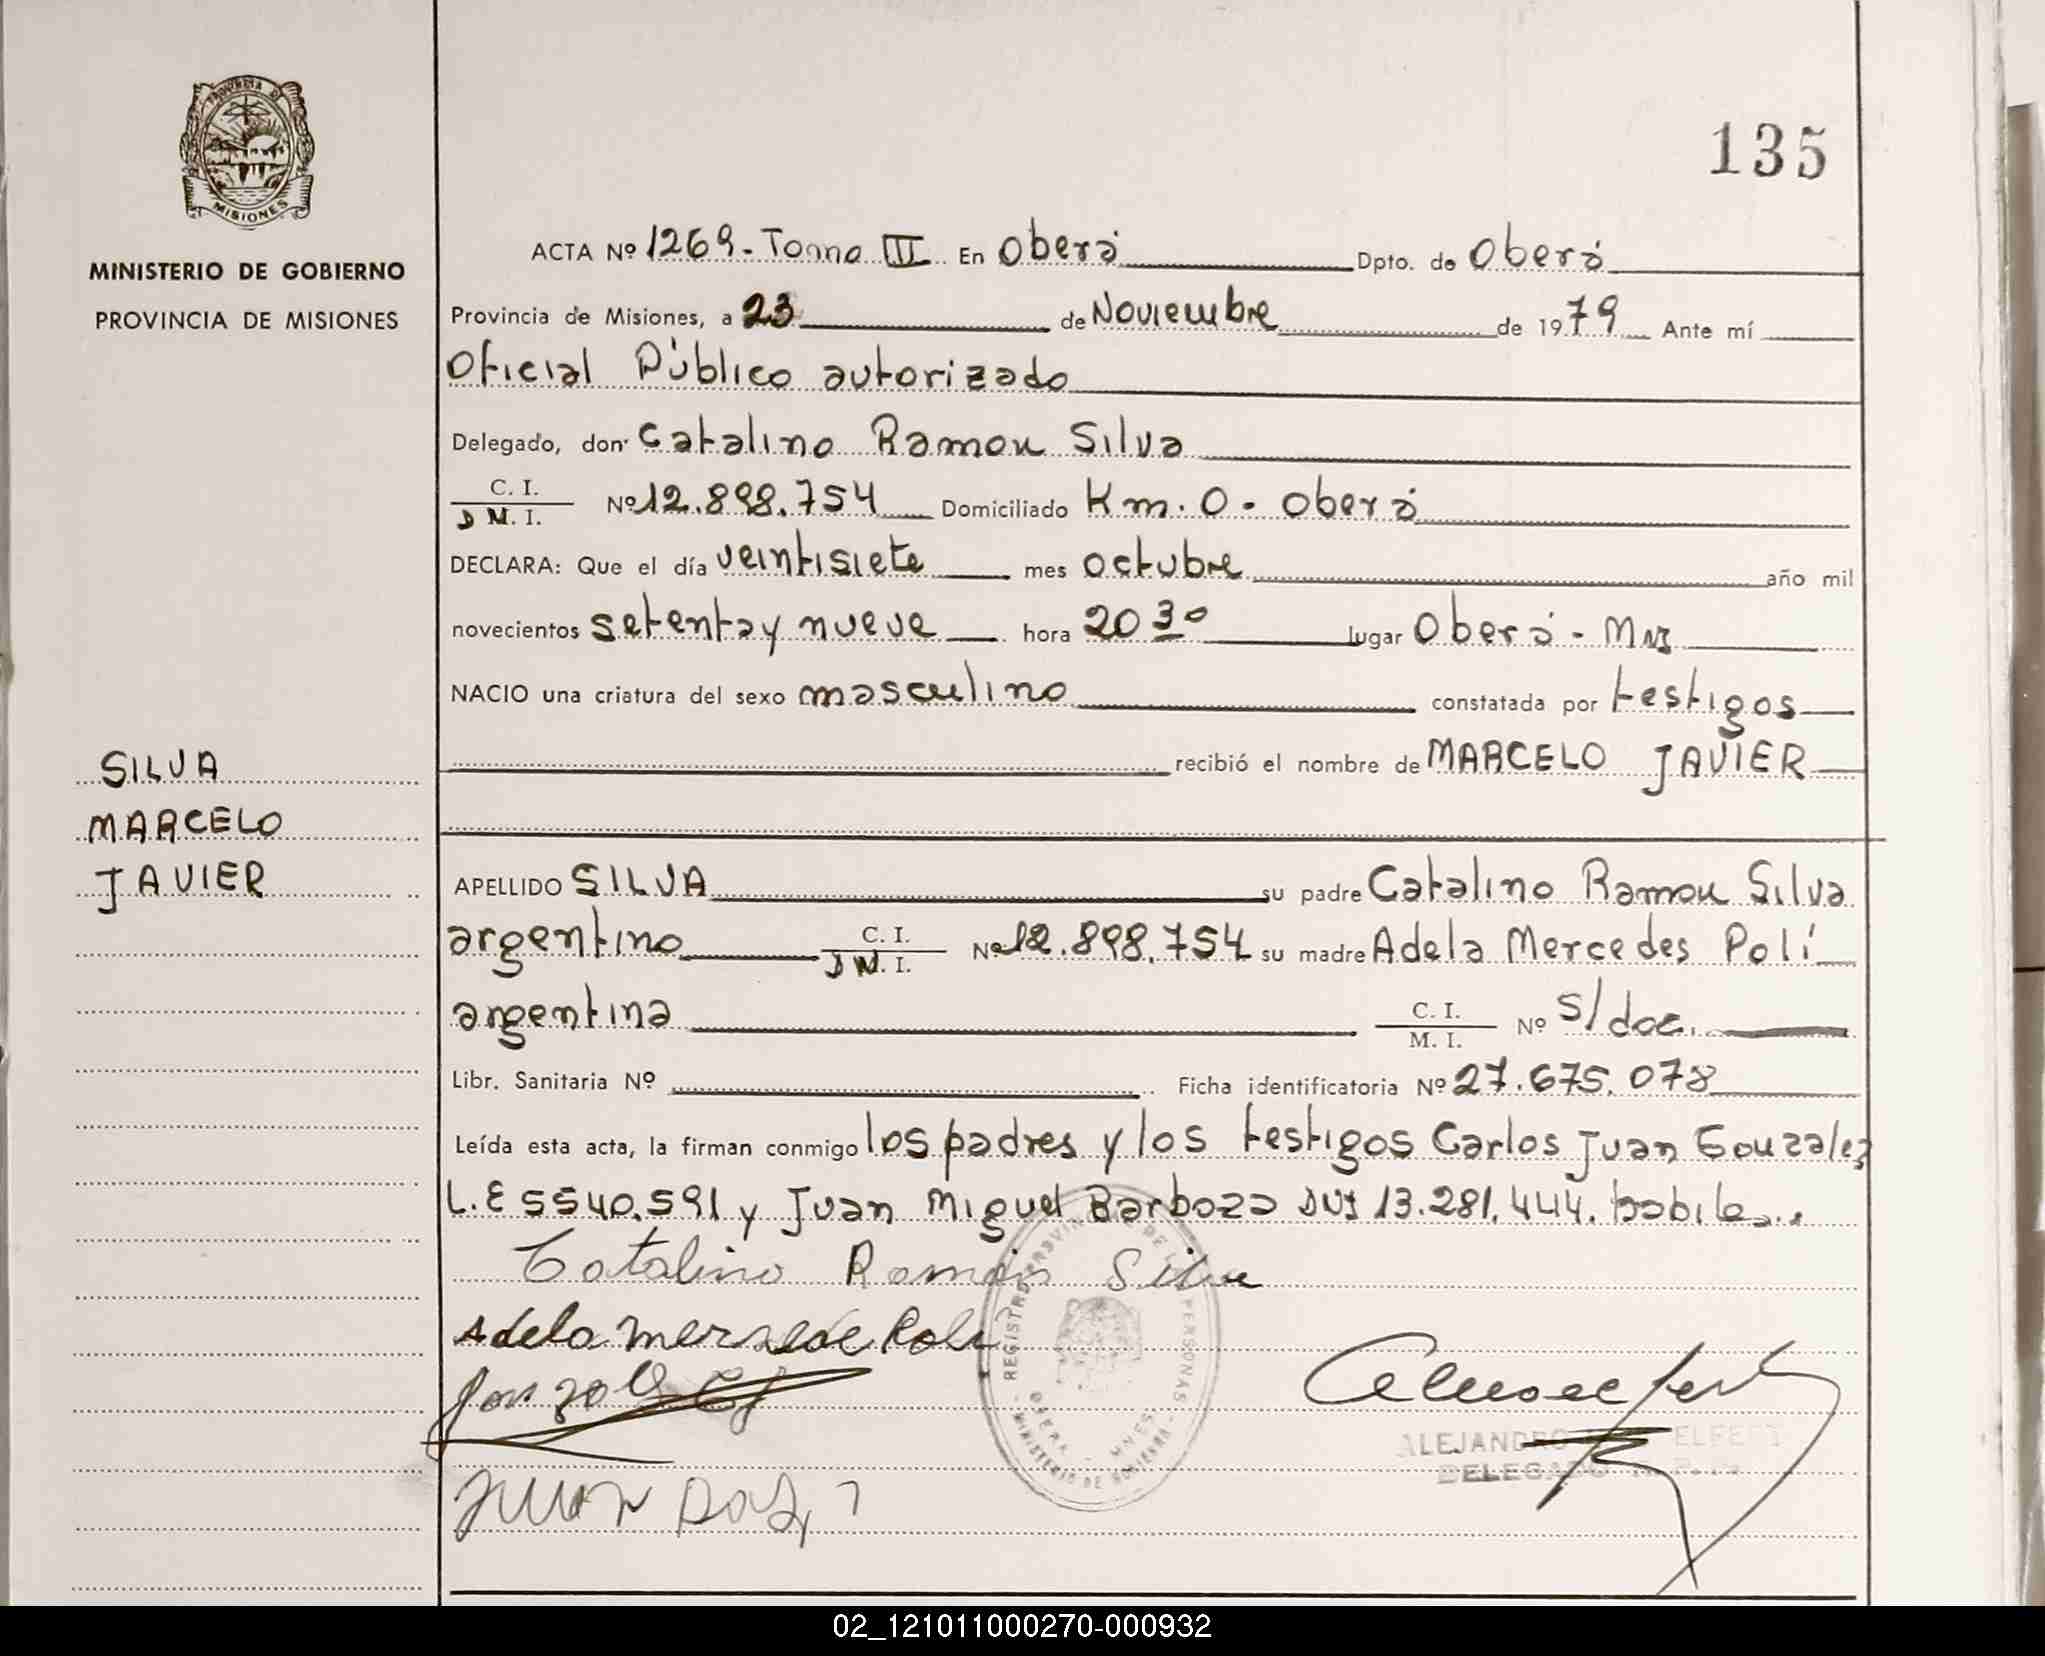 135
PROVINCIA DE
MISIONES
MINISTERIO DE GOBIERNO
PROVINCIA DE MISIONES
ACTA Nº 1269-Tomo III En Oberá Dpto. de Oberá
Provincia de Misiones, a 23 de Noviembre de 1979 Ante mí
Oficial Público autorizado
Delegado, don Catalino Ramon Silva
C. I.
D M. I. Nº 12.898.754 Domiciliado Km. 0 - Oberá
DECLARA: Que el día veintisiete mes octubre año mil
novecientos setenta y nueve hora 20 30 lugar Oberá - Mns
NACIO una criatura del sexo masculino constatada por testigos
recibió el nombre de MARCELO JAVIER
SILVA
MARCELO
JAVIER
APELLIDO SILVA su padre Catalino Ramon Silva
argentino C. I. D M. I. Nº 12.898.754 su madre Adela Mercedes Polí
argentina C. I. M. I. Nº S/doc.
Libr. Sanitaria Nº Ficha identificatoria Nº 27.675.078
Leída esta acta, la firman conmigo los padres y los testigos Carlos Juan Gonzalez
L.E 5540.591 y Juan Miguel Barboza DNI 13.281.444. habiles
Catalino Ramón Silva
Adela Mersede Poli
REGISTRO PROVINCIAL DE LAS PERSONAS
OBERA - MNES
MINISTERIO DE GOBIERNO
ALEJANDRO ELFERT
DELEGADO
02_121011000270-000932